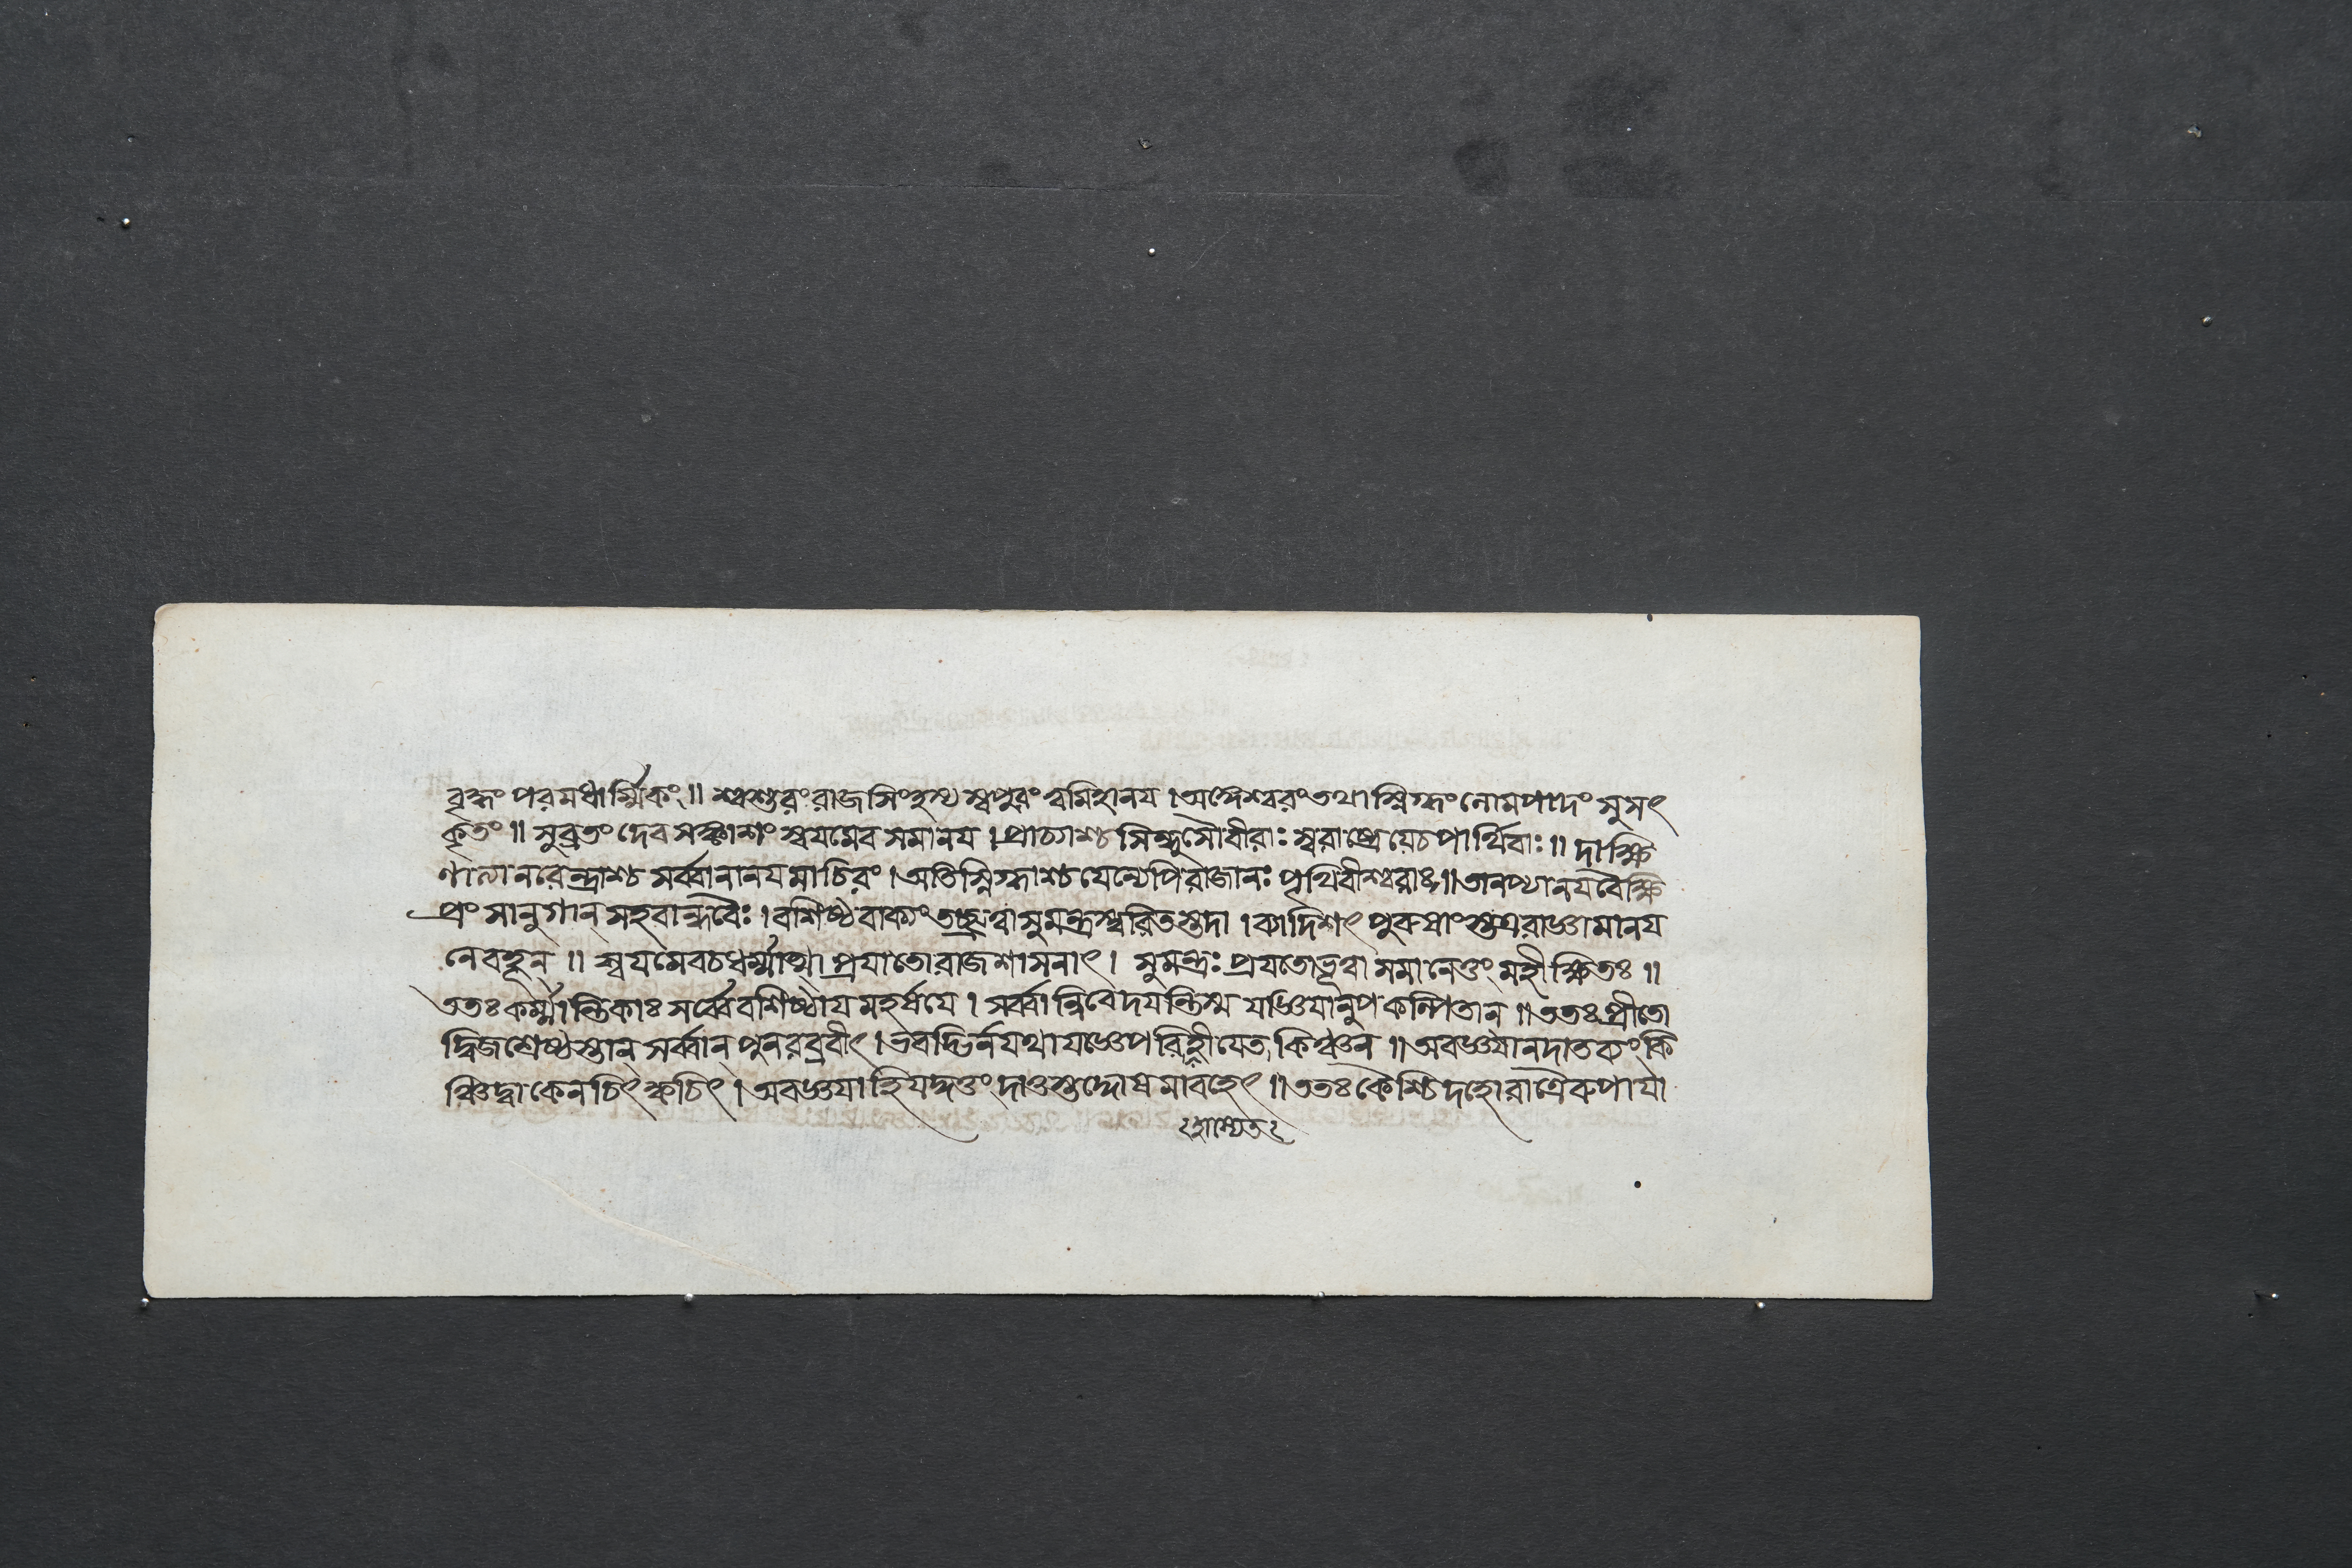 বৃদ্ধং পরমধার্ম্মিকং॥ শ্বশুরং রাজসিংহস্য সপুত্রং ত্বমিহানয। অঙ্গেশ্বরং তথা স্নিগ্ধং লোমপাদং সুসৎ
কৃতং॥ সুব্রতং দেবসঙ্কাশং স্বযমেব সমানয। প্রাচ্যাশ্চ সিন্ধুসৌবীরাঃ স্বরাষ্ট্রে যে চ পার্থিবাঃ॥ দাক্ষি
ণাত্যানরেন্দ্রাশ্চ সর্ব্বানানয মাচিরং। অতিস্নিগ্ধাশ্চ যেন্যেপি রাজানঃ পৃথিবীশ্বরাঃ॥ তানপ্যানয বৈ ক্ষি
প্রং সানুগান্ সহবান্ধবৈঃ। বশিষ্ঠবাক্যং তচ্ছ্রুত্বা সুমন্ত্রস্ত্বরিতস্তদা। ব্যাদিশৎ পুরুষাংস্তত্র রাজ্ঞামানয
নে বহূন্॥ স্বযমেব চ ধর্ম্মাত্মা প্রযাতো রাজশাসনাৎ। সুমন্ত্রঃ প্রযতো ভূত্বা সমানেতুং মহীক্ষিতঃ॥
ততঃ কর্ম্মান্তিকাঃ সর্ব্বে বশিষ্ঠায মহর্ষযে। সর্ব্বান্নিবেদযন্তি স্ম যজ্ঞিযানুপকল্পিতান্॥ ততঃ প্রীতো
দ্বিজশ্রেষ্ঠস্তান্ সর্ব্বান্ পুনরব্রবীৎ। ভবদ্ভির্নযথাযজ্ঞে পরিহীযেত কিঞ্চন॥ অবজ্ঞযা ন দাতব্যং কি
ঞ্চিদ্বা কেনচিৎ ক্বচিৎ। অবজ্ঞযা হি যদ্দত্তং দাতুস্তদ্দোষমাবহেৎ॥ ততঃ কৈশ্চিদহোরাত্রৈরুপাযা